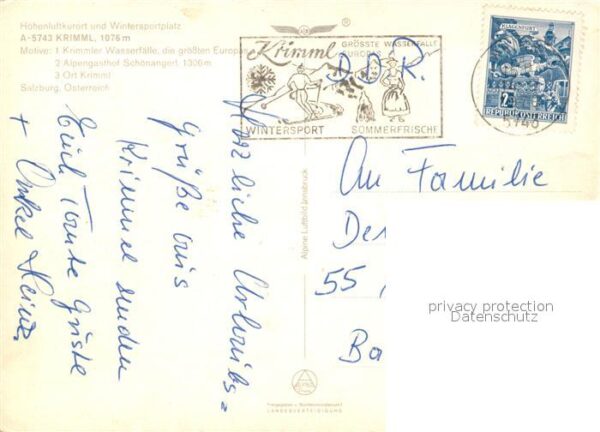 Höhenluftkurort und Wintersportplatz
A-5743 KRIMML, 1076 m
Motive: 1 Krimmler Wasserfälle, die größten Europas
2 Alpengasthof Schönangerl 1306m
3 Ort Krimml
Salzburg, Österreich
Krimml
GRÖSSTE WASSERFÄLLE
EUROPAS
WINTERSPORT SOMMERFRISCHE
D.D.R.
KLAGENFURT
2
REPUBLIK ÖSTERREICH
5740
Herzliche Urlaubs-
Grüße aus
Krimmel senden
Euch Tante
+ Onkel Heinz.
Alpine Luftbild Innsbruck
LANDESVERTEIDIGUNG
An Familie
De
55
Ba
privacy protection
Datenschutz